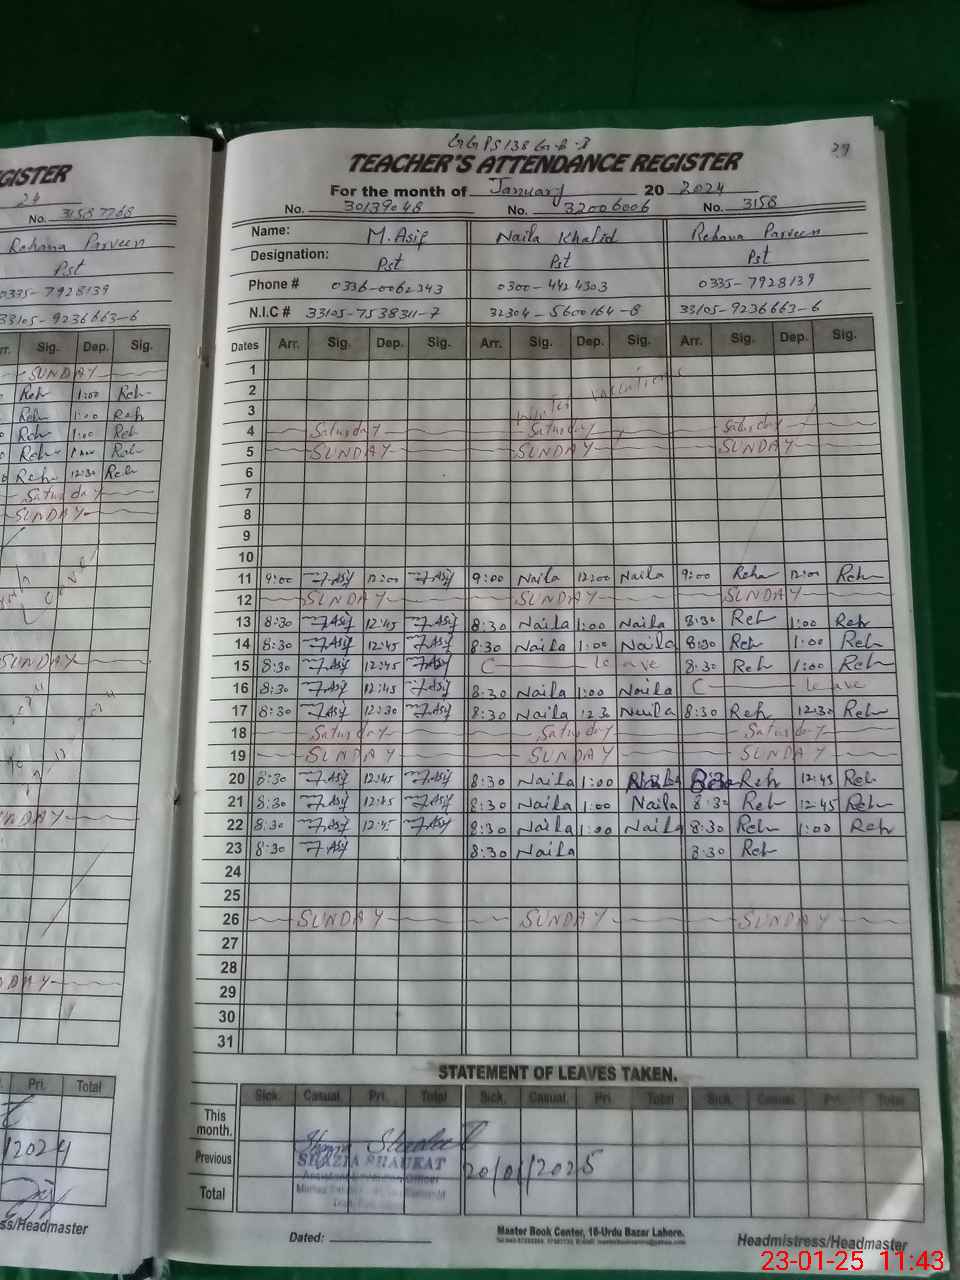 GISTER
24
No. 31587768
Rehana Parveen
Pst
0335-7928139
33105-9236663-6
rr. Sig. Dep. Sig.
SUNDAY
Reh 1:00 Reh
Reh 1:00 Reh
Reh 1:00 Reh
Reh Reh
Reh 12:30 Reh
Saturday
SUNDAY
SUNDAY
SUNDAY
Pri. Total
ss/Headmaster
29
TEACHER'S ATTENDANCE REGISTER
For the month of January 20 2024
No. 30139048 No. 32006006 No. 3158
Name: M. Asif Naila Khalid Rehana Parveen
Designation: Pst Pst Pst
Phone # 0336-0062343 0300-4424303 0335-7928139
N.I.C # 33105-7538311-7 32304-5600164-8 33105-9236663-6
Dates Arr. Sig. Dep. Sig. Arr. Sig. Dep. Sig. Arr. Sig. Dep. Sig.
1
2 winter vacations
3
4 Saturday Saturday Saturday
5 SUNDAY SUNDAY SUNDAY
6
7
8
9
10
11 9:00 Asif 12:00 Asif 9:00 Naila 12:00 Naila 9:00 Reha 12:00 Reh
12 SUNDAY SUNDAY SUNDAY
13 8:30 Asif 12:45 Asif 8:30 Naila 1:00 Naila 8:30 Reh 1:00 Reh
14 8:30 Asif 12:45 Asif 8:30 Naila 1:00 Naila 8:30 Reh 1:00 Reh
15 8:30 Asif 12:45 Asif C leave 8:30 Reh 1:00 Reh
16 8:30 Asif 12:45 Asif 8:30 Naila 1:00 Naila C leave
17 8:30 Asif 12:30 Asif 8:30 Naila 12:30 Naila 8:30 Reh 12:30 Reh
18 Saturday Saturday Saturday
19 SUNDAY SUNDAY SUNDAY
20 8:30 Asif 12:45 Asif 8:30 Naila 1:00 Naila 8:30 Reh 12:45 Reh
21 8:30 Asif 12:45 Asif 8:30 Naila 1:00 Naila 8:30 Reh 12:45 Reh
22 8:30 Asif 12:45 Asif 8:30 Naila 1:00 Naila 8:30 Reh 1:00 Reh
23 8:30 Asif 8:30 Naila 8:30 Reh
24
25
26 SUNDAY SUNDAY SUNDAY
27
28
29
30
31
STATEMENT OF LEAVES TAKEN.
Sick. Casual. Pri. Total Sick. Casual. Pri. Total Sick. Casual. Pri. Total
This month.
Previous
SHAZIA SHAUKAT
20/01/2025
Total
Dated:
Master Book Center, 16-Urdu Bazar Lahore.
Headmistress/Headmaster
23-01-25 11:43